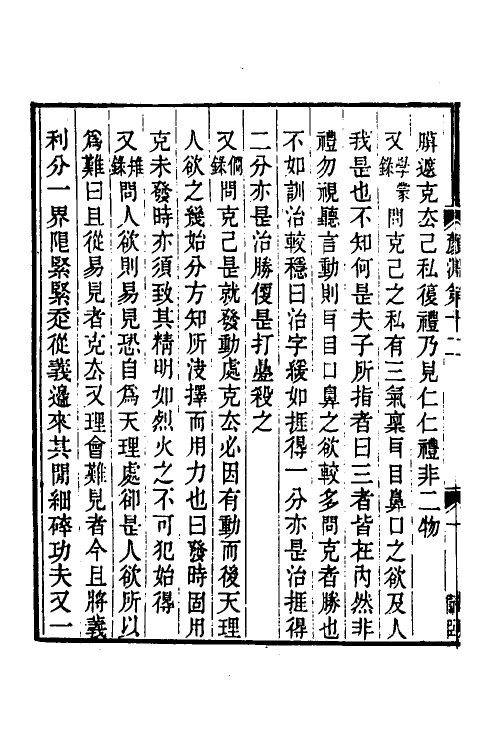 顏淵第十二
牓遊克去己私復禮乃見仁仁禮非二物
又學蒙錄問克己之私有三氣稟耳目鼻口之欲及人
我是也不知何是夫子所指者曰三者皆在內然非
禮勿視聽言動則耳目口鼻之欲較多問克者勝也
不如訓治較穩曰治字緩如捱得一分亦是治捱得
二分亦是治勝便是打疊殺之
又僩錄問克己是就發動處克去必因有動而後天理
人欲之幾始分方知所決擇而用力也曰發時固用
克未發時亦須致其精明如烈火之不可犯始得
又雉錄問人欲則易見恐自爲天理處卻是人欲所以
爲難曰且從易見者克去又理會難見者今且將義
利分一界限緊緊走從義邊來其閒細碎功夫又一